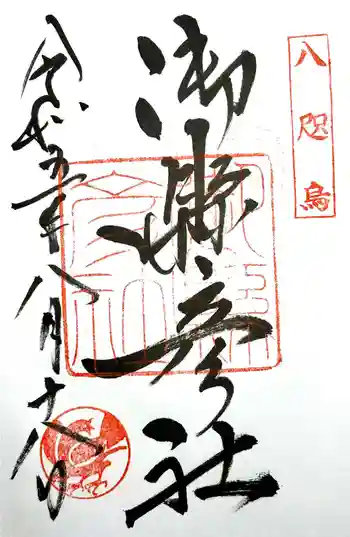 八咫烏
御縣彦社
令和五年八月十八日